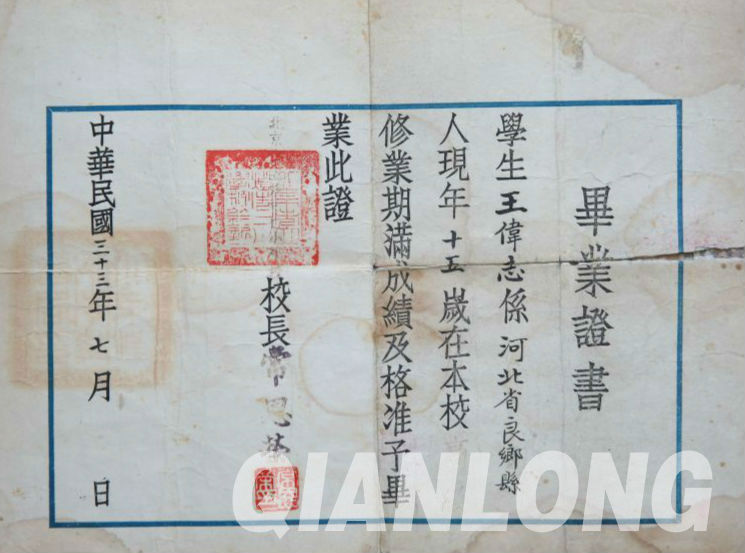 畢業證書
學生王偉志係河北省良鄉縣
人現年十五歲在本校
修業期滿成績及格准予畢
業此證
北京
校長常
中華民國三十三年七月 日
QIANLONG